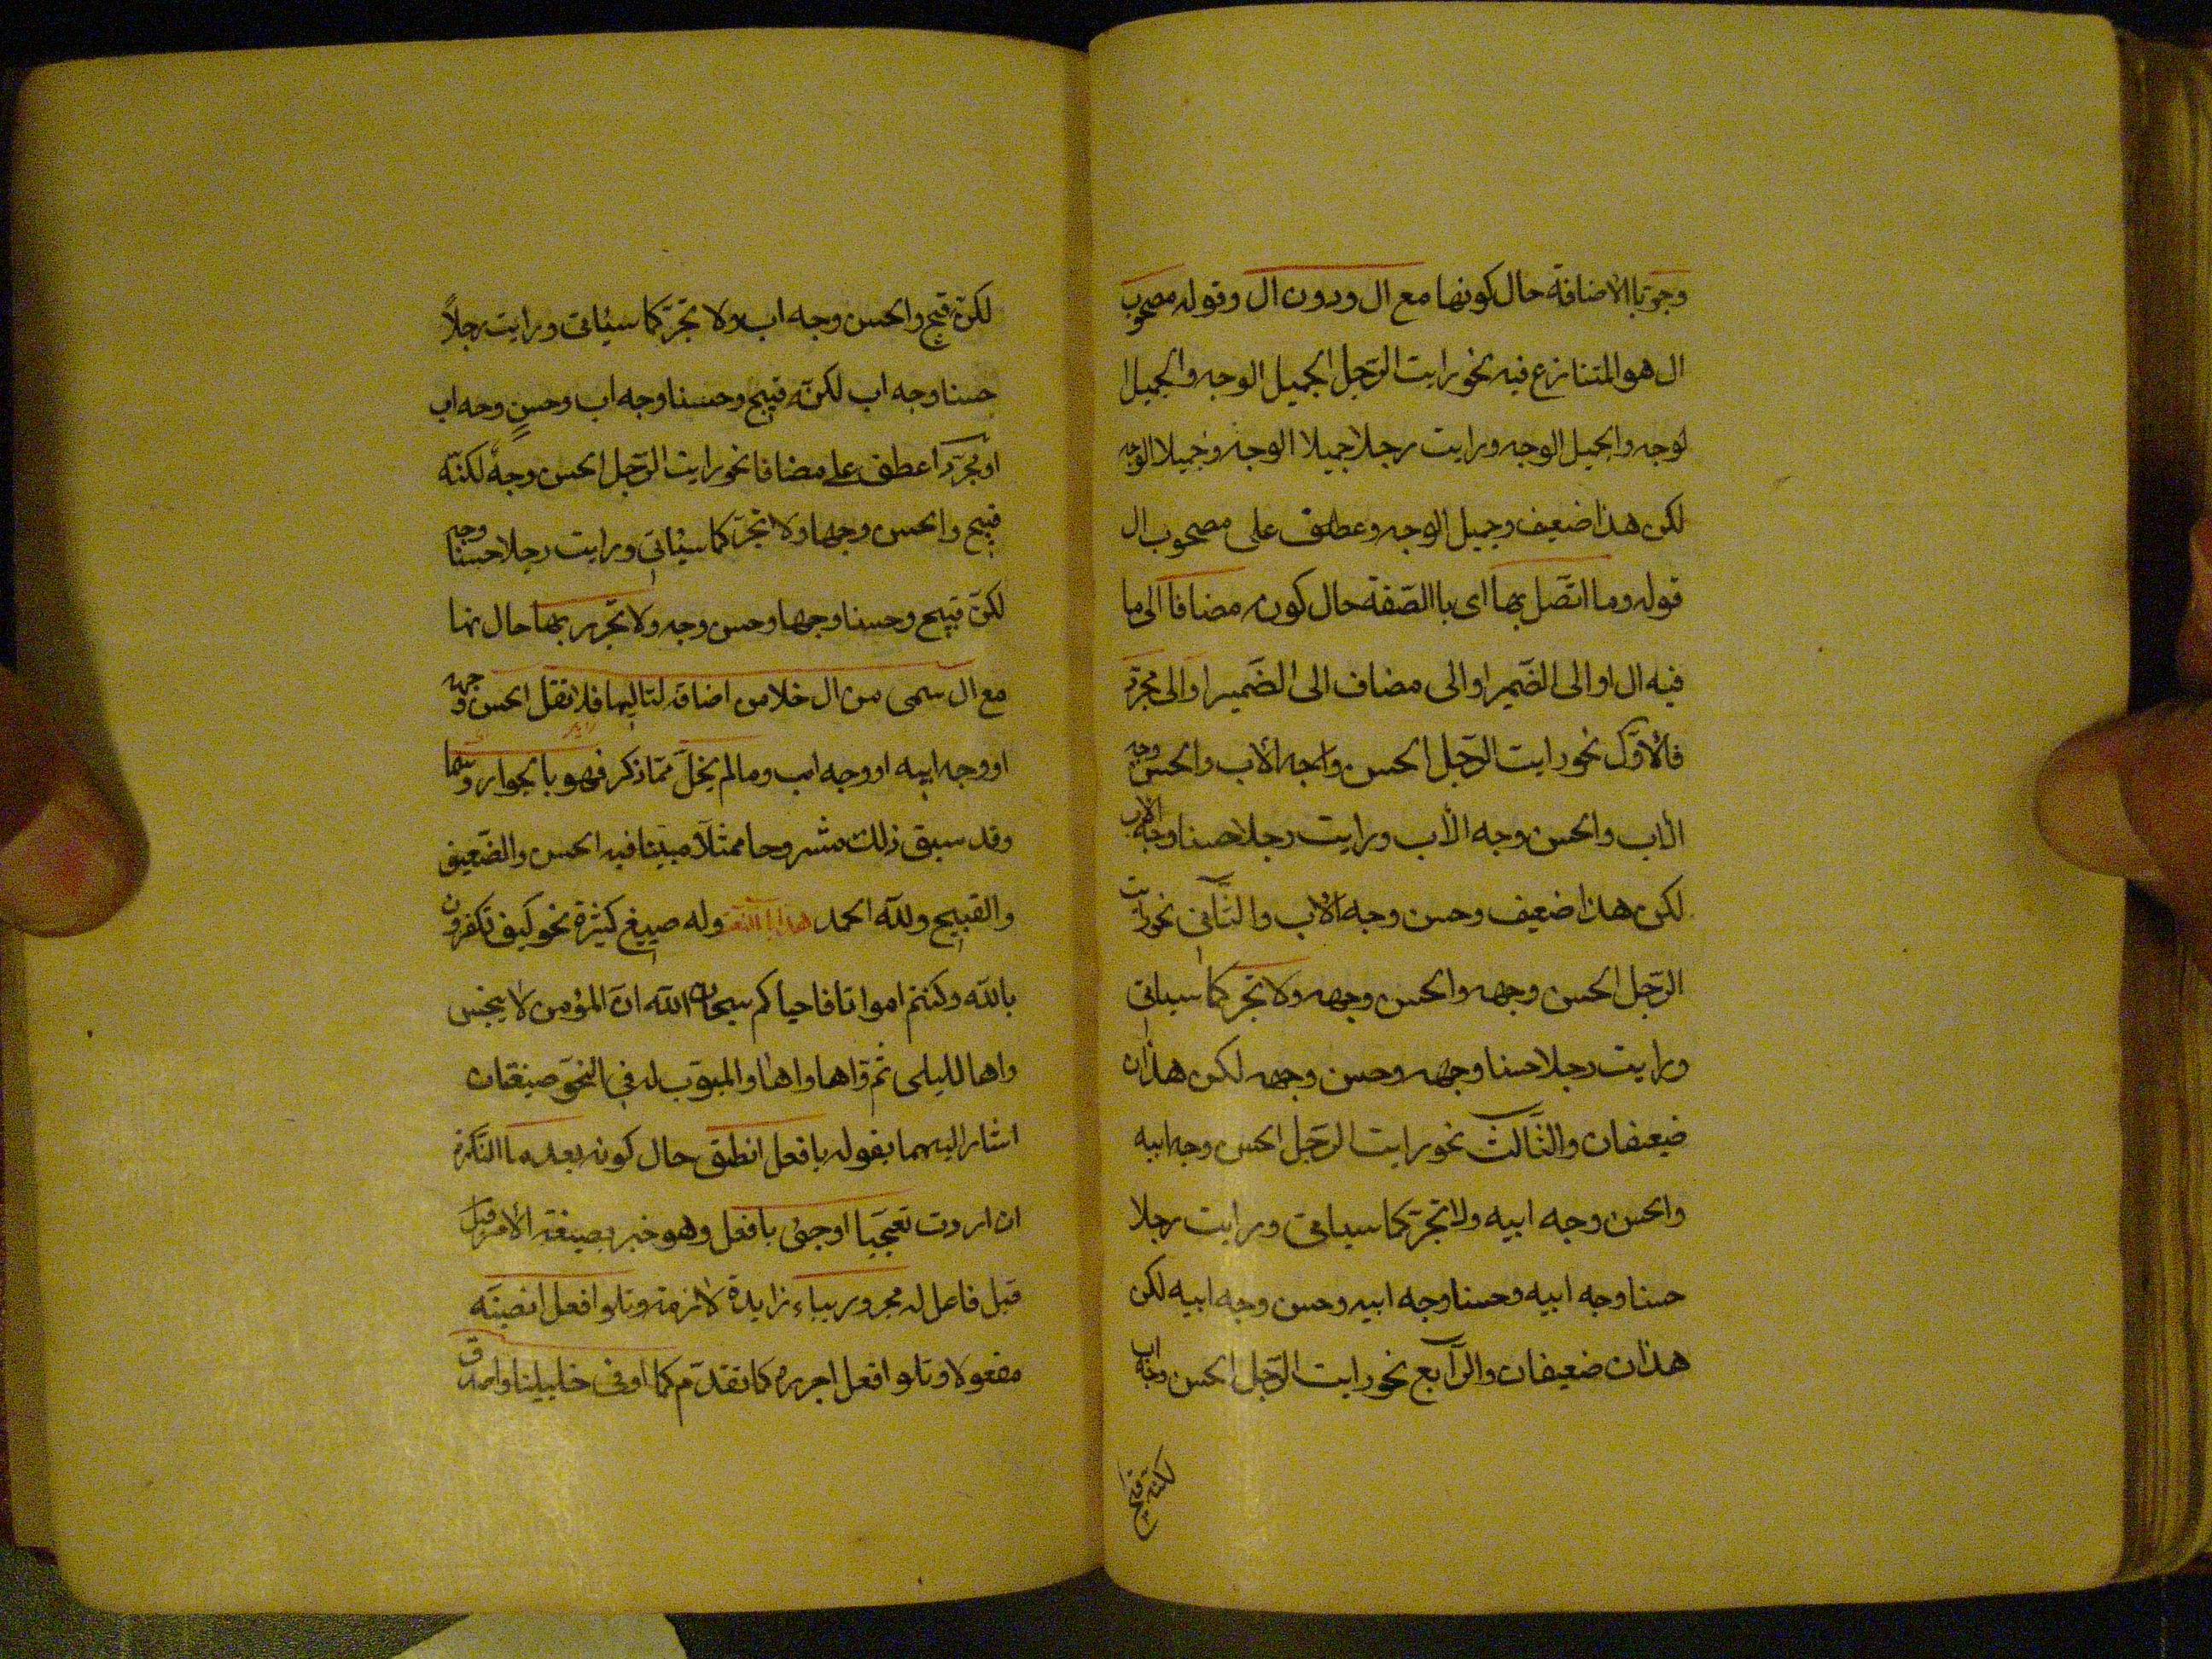 وجرّ باالاضافة حال كونها مع ال ودون ال وقوله مصحوب
ال هو المتنازع فيه نحو رايت الرّجل الجميل الوجه والجميل ا
لوجه والجميل الوجه ورايت رجلا جميلا الوجه وجميلا الوجه
لكن هذا ضعيف وجميل الوجه وعطف على مصحوب ال
قوله وما اتّصل بها اى باالصّفة حال كونه مضافا الى ما
فيه ال او الى الضّمير او الى مضاف الى الضّمير او الى مجرّد
فالأوّل نحو رايت الرّجل الحسن واجه الأب والحسن وجه
الأب والحسن وجه الأب ورايت رجلا حسنا وجه الأب
لكن هذا ضعيف وحسن وجه الأب والثّانى نحو رايت
الرّجل الحسن وجهه والحسن وجهه ولا تجرّ كما سياتى
ورايت رجلا حسنا وجهه وحسن وجهه لكن هذان
ضعيفان والثّالث نحو رايت الرّجل الحسن وجه ابيه
والحسن وجه ابيه ولا تجرّ كما سياتى ورايت رجلا
حسنا وجه ابيه وحسنا وجه ابيه وحسن وجه ابيه لكن
هذان ضعيفان والرّابع نحو رايت الرّجل الحسن وجه اب
لكنّه قبيح
لكنّ قبيح والحسن وجه اب ولا تجرّ كما سئاتى ورايت رجلاً
حسنا وجه اب لكنّه قبيح وحسنا وجه اب وحسنٍ وجه اب
او مجرّدا عطف على مضافا نحو رايت الرّجل الحسن وجهٌ لكنّه
قبيح والحسن وجها ولا تجرّ كما سئاتى ورايت رجلا حسنا وجه
لكنّ قبيح وحسنا وجها وحسن وجه ولا تجرر بها حال نها
مع ال سمى من ال خلا من اضافة لتاليها فلا تقل الحسن وجهه
او وجه ابيه او وجه اب وما لم يخلّ ممّا ذكر فهو باالجواز وسما
وقد سبق ذلك مشروحا ممثلا مبيّنا فيه الحسن والضّعيف
والقبيح ولله الحمد هذا باب التعجب وله صييغ كثيرة نحو كيف تكفرون
بالله وكنتم امواتا فاحياكم سبحان الله انّ المؤمن لا ينجس
واها لليلى ثمّ واها واها والمبوّب له فى النحو صيغتان
اشار اليهما بقوله بافعل انطق حال كونه بعد ما النّكرة
ان اردت تعجّبا او جئ بافعل وهو خبر بصيغة الأمر قبل
قبل فاعل له مجرور بباء زايدة لازمة وتلو افعل انصبنّه
مفعولا وتلو افعل اجرره كما تقدّم كما اوفى خليلينا واصدق